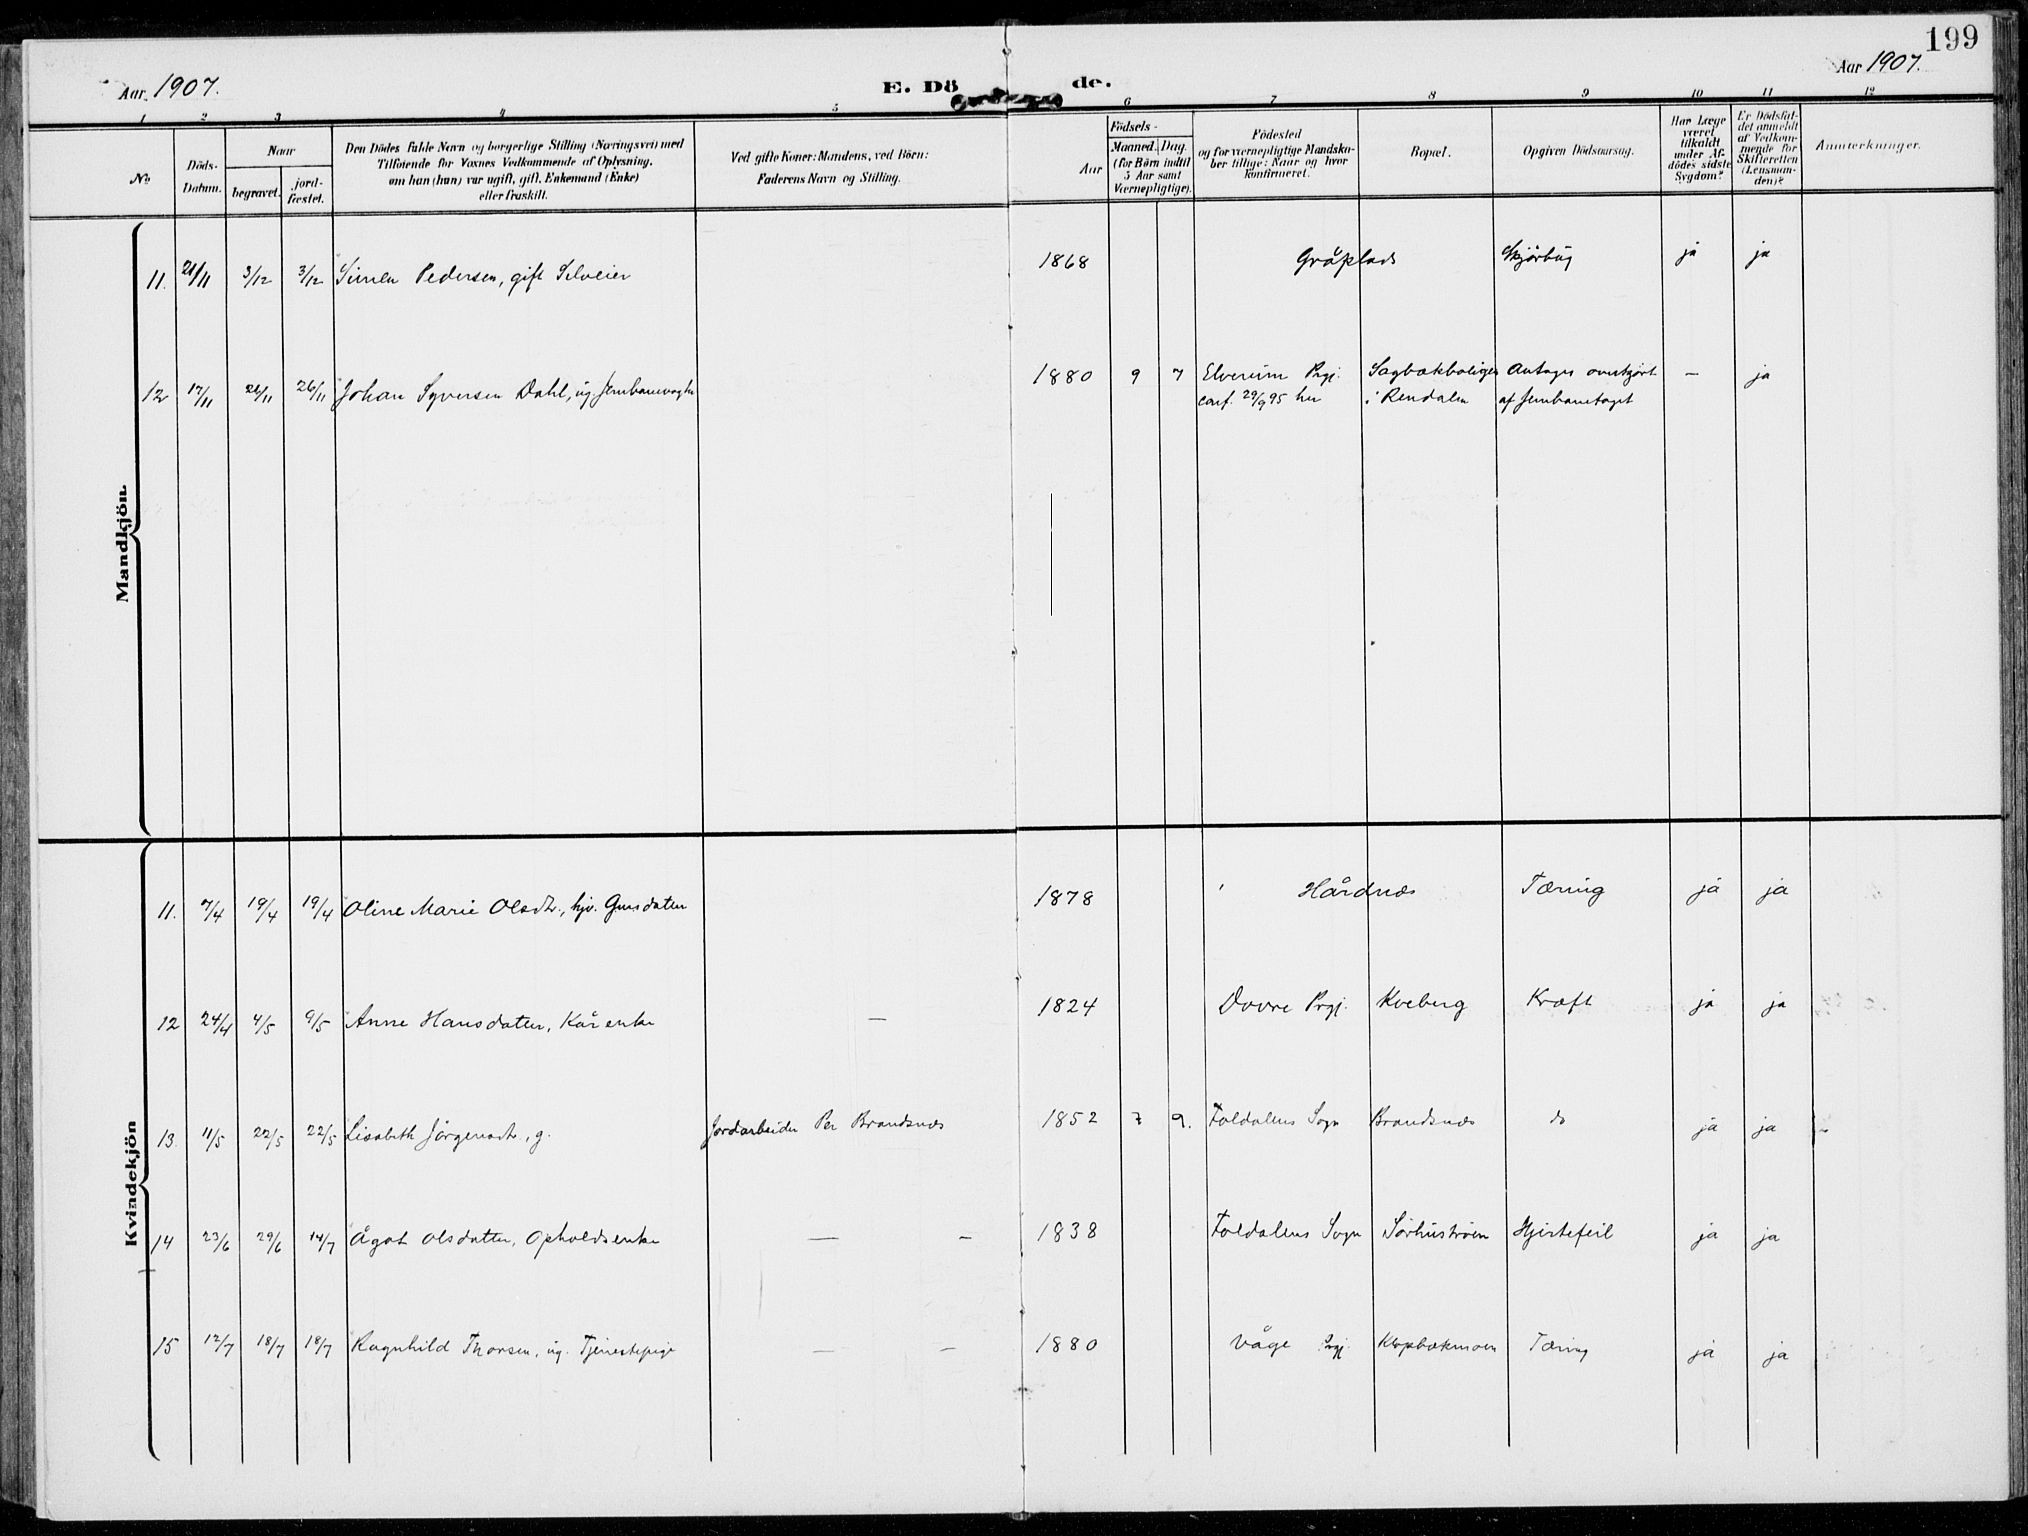 199
Aar 1907.
E. Dö de.
Aar 1907.
1 2 3 4 5 6 7 8 9 10 11 12
No
Döds-Datum.
Naar
begravet.
jord-fæstet.
Den Dödes fulde Navn og borgerlige Stilling (Næringsvei) med
Tilföiende for Voxnes Vedkommende af Oplysning,
om han (hun) var ugift, gift, Enkemand (Enke)
eller fraskilt.
Ved gifte Koner: Mandens, ved Börn:
Faderens Navn og Stilling.
Födsels-
Aar
Maaned. Dag.
(for Börn indtil
5 Aar samt
Værnepligtige).
Födested
og for værnepligtige Mandska-
ber tillige: Naar og hvor
konfirmeret.
Bopæl.
Opgiven Dödsaarsag.
Har Læge
været
tilkaldt
under Af-
dödes sidste
Sygdom?
Er Dödsfal-
det anmeldt
af Vedkom-
mende for
Skifteretten
(Lensman-
den)?
Anmærkninger.
Mandkjön.
11. 21/11 3/12 3/12 Simen Pedersen, gift Selveier 1868 Gråplads Skjörbug ja ja
12 17/11 26/11 26/11 Johan Syversen Dahl, ug. Jernbanevogter 1880 9 7 Elverum Prgj. Sagbækboligen Antages overkjört — ja
conf. 29/9 95 her i Rendalen af Jernbanetoget
Kvindekjön
11. 7/4 19/4 19/4 Oline Marie Olsdtr., hjv. Gmsdatter 1878 Hårdnæs Tæring ja ja
12 24/4 4/5 9/5 Anne Hansdatter, Kårenke — 1824 Dovre Prgj. Kveberg Kræft ja ja
13. 11/5 22/5 22/5 Lisabeth Jörgensdtr., g. Jordarbeider Per Brandsnæs 1852 7 9. Foldalens Sogn Brandsnæs do ja ja
14 23/6 29/6 14/7 Ågot Olsdatter, Opholdsenke — — 1838 Foldalens Sogn Sörhuströen Hjertefeil ja ja
15 12/7 18/7 18/7 Ragnhild Thorsen, ug. Tjenestepige — — 1880 Våge Prgj. Klopbækmoen Tæring ja ja